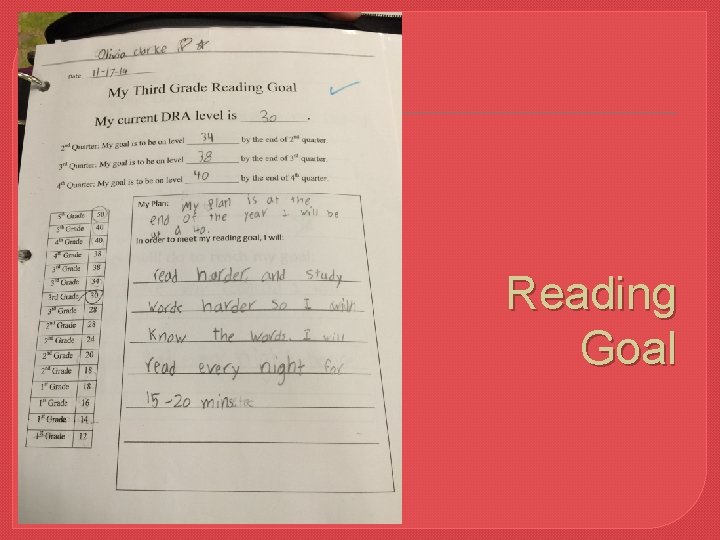 Olivia Clarke
Date 11-17-14
My Third Grade Reading Goal
My current DRA level is 30.
2nd Quarter: My goal is to be on level 34 by the end of 2nd quarter.
3rd Quarter: My goal is to be on level 38 by the end of 3rd quarter.
4th Quarter: My goal is to be on level 40 by the end of 4th quarter.
5th Grade 50
5th Grade 40
4th Grade 40
4th Grade 38
3rd Grade 38
3rd Grade 34
3rd Grade 30
3rd Grade 28
2nd Grade 28
2nd Grade 24
2nd Grade 20
2nd Grade 18
1st Grade 18
1st Grade 16
1st Grade 14
1st Grade 12
My Plan: My plan is at the
end of the year I will be
at a 40.
In order to meet my reading goal, I will:
read harder, and study
words harder so I will
know the words. I will
read every night for
15-20
Reading
Goal